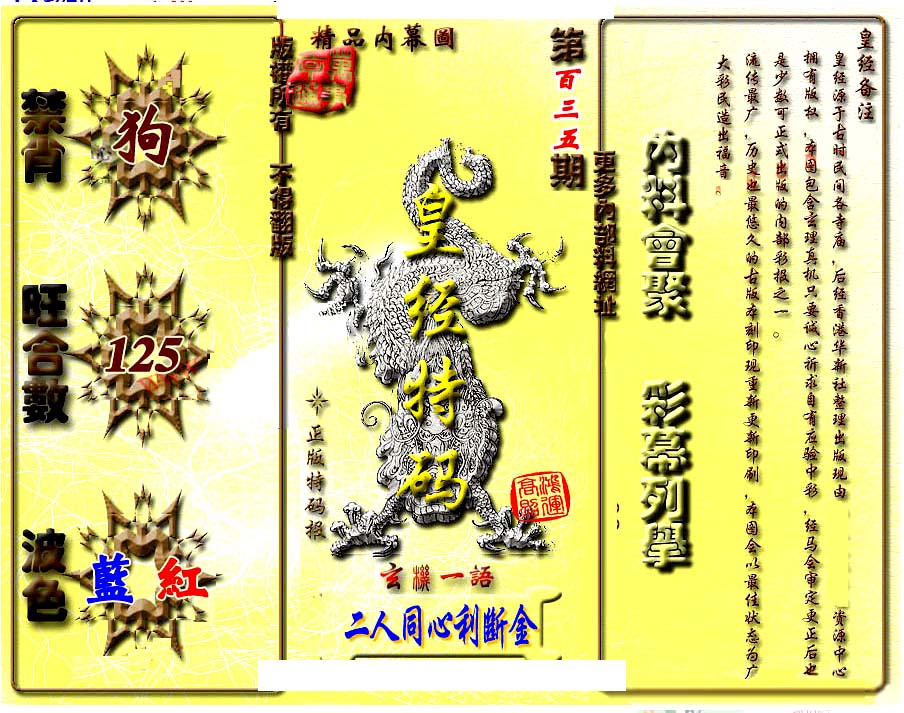 皇经备注
皇经源于古时民间各寺庙，后经香港华新社整理出版现由 资源中心
拥有版权，本图包含玄理真机只要诚心祈求自有应验中彩，经马会审定更正后也
是少数可正式出版的内部彩报之一。
流传最广，历史也最悠久的古版本刻印现重新更新印刷，本图会以最佳状态为广
大彩民造出福音
內料會聚
彩幕列舉
更多內部料網址
第百三五期
精品内幕圖
版權所有 不得翻版
皇经特码
正版特码报
鴻運高照
玄機一語
二人同心利斷金
禁肖
狗
旺合數
125
波色
藍 紅